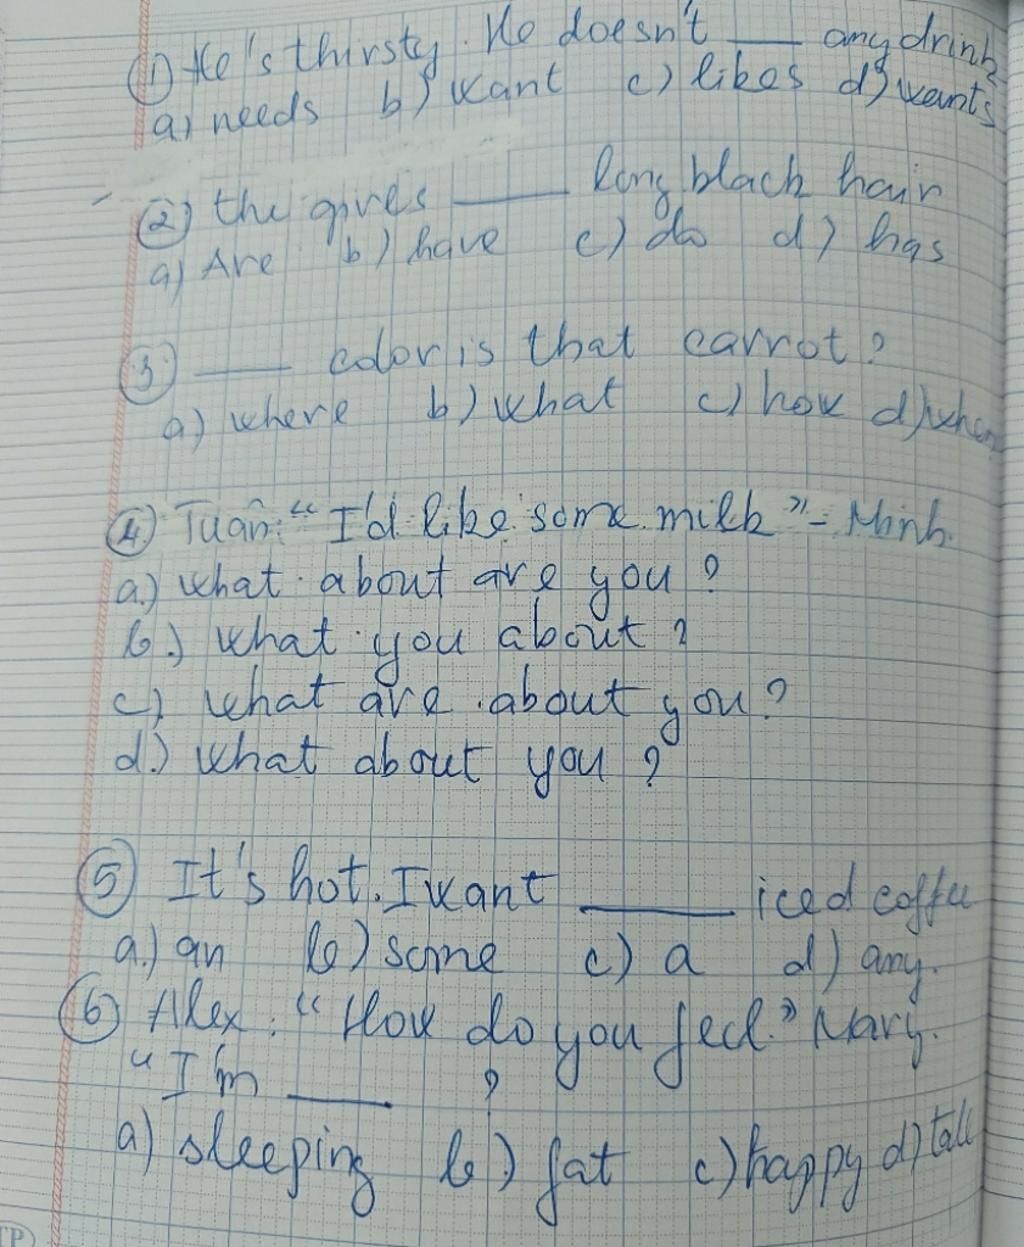 ① He's thirsty. He doesn't ___ any drink
a) needs b) want c) likes d) wants
② the gives ___ long black hair
a) Are b) have c) do d) has
③ ___ color is that carrot?
a) where b) what c) how d) when
④ Tuấn: "I'd like some milk" - Minh.
a.) what about are you?
b.) what you about?
c) what are about you?
d.) what about you?
⑤ It's hot. I want ___ iced coffee
a.) an b) some c) a d) any.
⑥ Alex: "How do you feel." Mary.
"I'm ___ ?
a) sleeping b) fat c) happy d) tall
TP